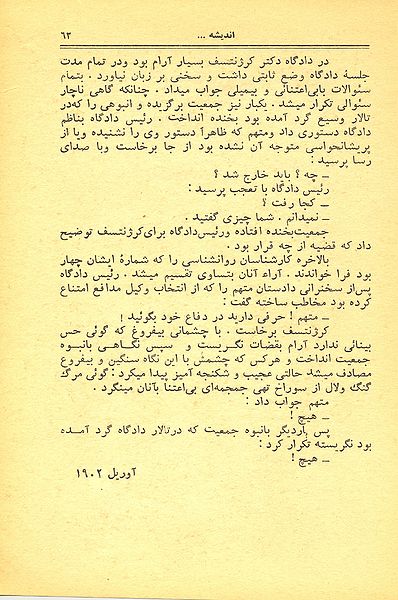 اندیشه ... ۶۳
در دادگاه دکتر کرژنتسف بسیار آرام بود ودر تمام مدت
جلسهٔ دادگاه وضع ثابتی داشت و سخنی بر زبان نیاورد . بتمام
سئوالات بابی‌اعتنائی و بیمیلی جواب میداد . چنانکه گاهی ناچار
سئوالی تکرار میشد . یکبار نیز جمعیت برگزیده و انبوهی را که‌در
تالار وسیع گرد آمده بود بخنده انداخت . رئیس دادگاه بناظم
دادگاه دستوری داد ومتهم که ظاهراً دستور وی را نشنیده ویا از
پریشانحواسی متوجه آن نشده بود از جا برخاست وبا صدای
رسا پرسید :
ــ چه ؟ باید خارج شد ؟
رئیس دادگاه با تعجب پرسید :
ــ کجا رفت ؟
ــ نمیدانم . شما چیزی گفتید .
جمعیت‌بخنده افتاده ورئیس‌دادگاه برای‌کرژنتسف توضیح
داد که قضیه از چه قرار بود .
بالاخره کارشناسان روانشناسی را که شمارهٔ ایشان چهار
بود فرا خواندند . آراء آنان بتساوی تقسیم میشد . رئیس دادگاه
پس‌از سخنرانی دادستان متهم را که از انتخاب وکیل مدافع امتناع
کرده بود مخاطب ساخته گفت :
ــ متهم ! حرفی دارید در دفاع خود بگوئید !
کرژنتسف برخاست . با چشمانی بیفروغ که گوئی حس
بینائی ندارد آرام بقضات نگریست و سپس نگاهی بانبوه
جمعیت انداخت و هرکس که چشمش با این نگاه سنگین و بیفروغ
مصادف میشد حالتی عجیب و شکنجه آمیز پیدا میکرد : گوئی مرگ
گنگ ولال از سوراخ تهی جمجمه‌ای بی‌اعتنا بآنان مینگرد .
متهم جواب داد :
ــ هیچ !
پس باردیگر بانبوه جمعیت که درتالار دادگاه گرد آمده
بود نگریسته تکرار کرد :
ــ هیچ !
آوریل ۱۹۰۲